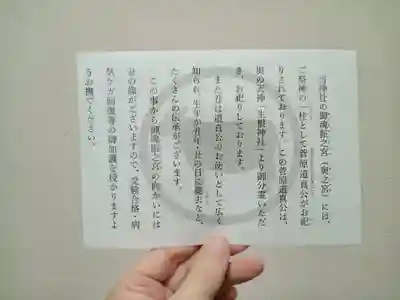 当神社の「御魂振之宮」（奥之宮）には、
ご祭神の一柱として菅原道真公がお祀
りされております。この菅原道真公は、
奥の天神「生根神社」より御分霊いただ
き、お祀りしております。
また牛は道真公のお使いとして広く
知られ、生年が丑年、丑の日に薨去など、
たくさんの伝承がございます。
この事から御魂振之宮の向かいには
牛の像がございますので、受験合格・病
気ケガ回復等の御加護を授かりますよ
うお撫でください。